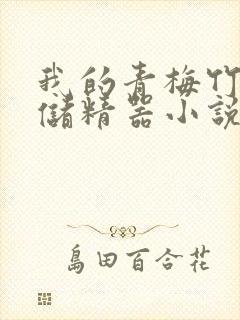 我的青梅竹
儲精器小說
島田百合花